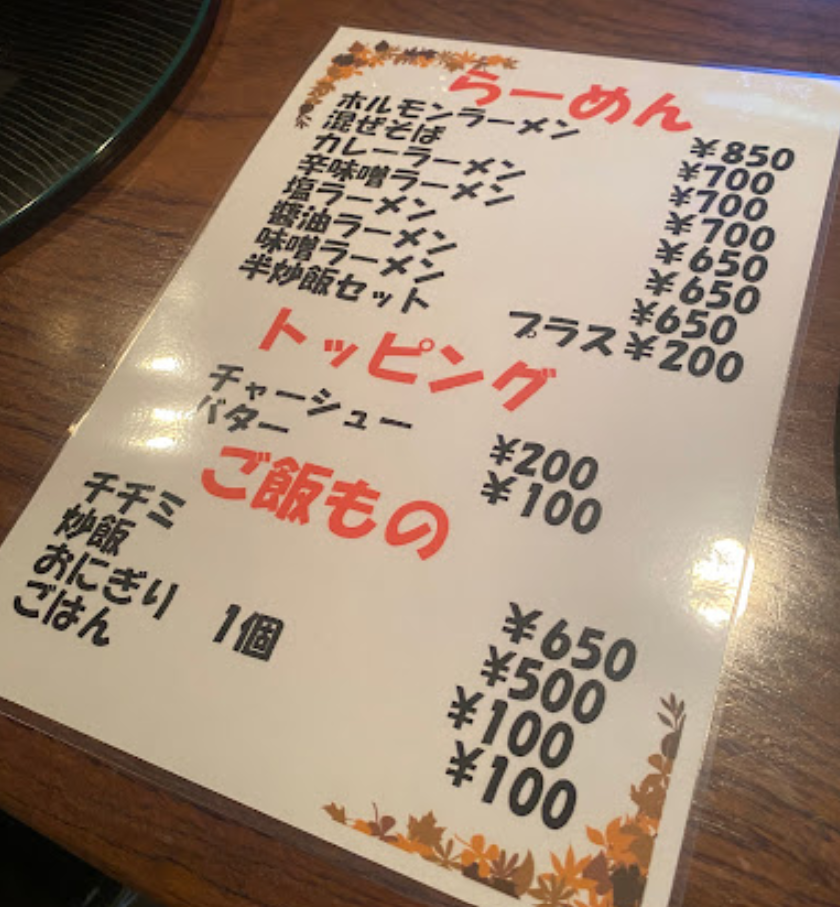 らーめん
ホルモンラーメン ¥850
混ぜそば ¥700
カレーラーメン ¥700
辛味噌ラーメン ¥700
塩ラーメン ¥650
醬油ラーメン ¥650
味噌ラーメン ¥650
半炒飯セット プラス¥200
トッピング
チャーシュー ¥200
バター ¥100
ご飯もの
チヂミ ¥650
炒飯 ¥500
おにぎり 1個 ¥100
ごはん ¥100